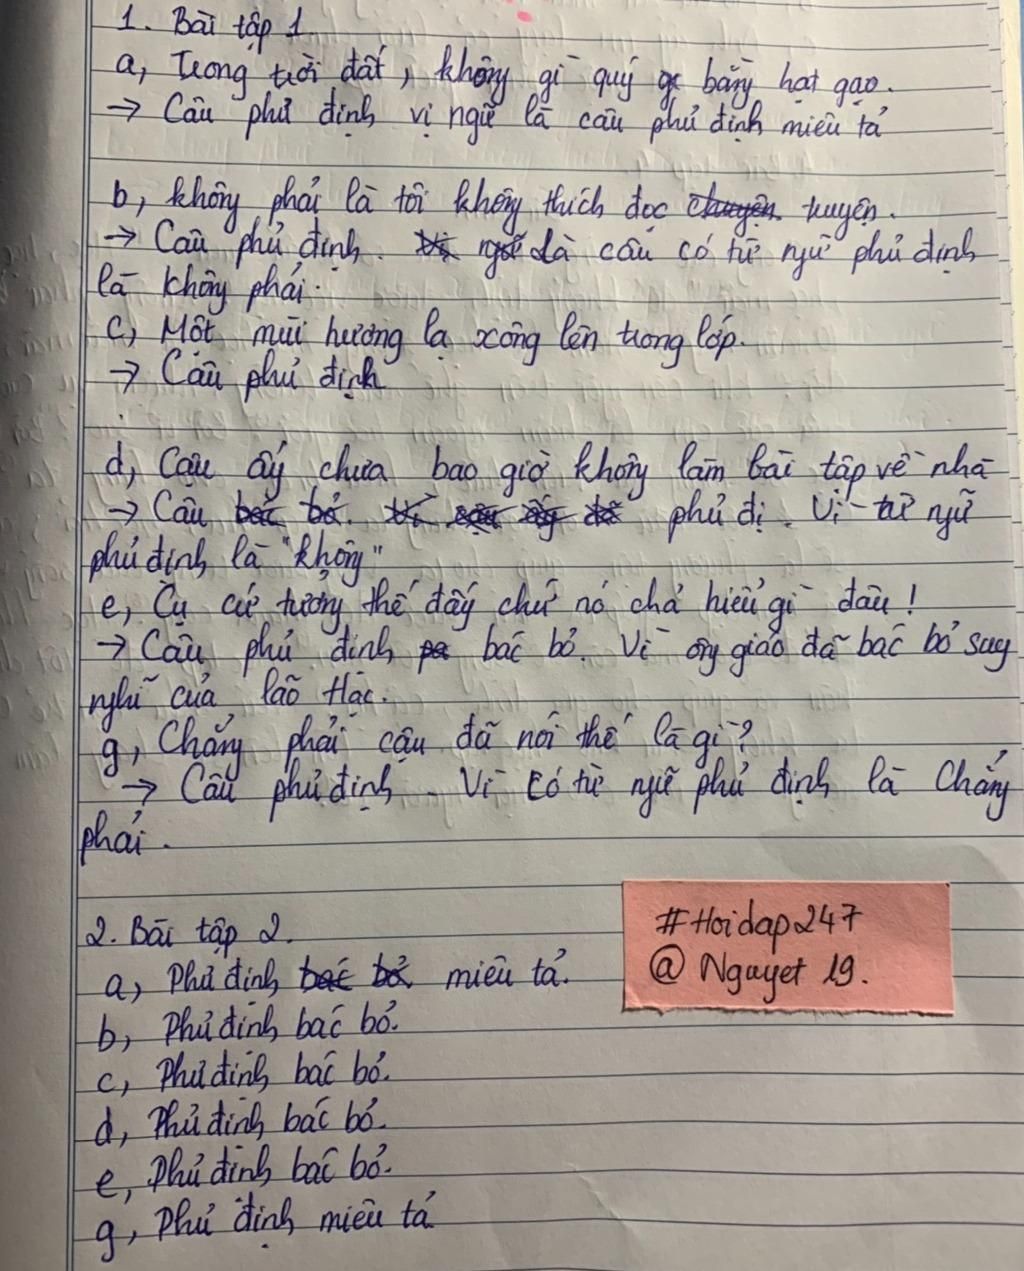 1. Bài tập 1
a, Trong trời đất, không gì quý bằng hạt gạo.
→ Câu phủ định vị ngữ là câu phủ định miêu tả
b, không phải là tôi không thích đọc chuyện truyện.
→ Câu phủ định. Vì ngữ là câu có từ ngữ phủ định
là không phải.
c, Một mùi hương lạ xông lên trong lớp.
→ Câu phủ định
d, Cậu ấy chưa bao giờ không làm bài tập về nhà
→ Câu bác bỏ. Vì cậu ấy đã phủ đị. Vì từ ngữ
phủ định là "không"
e, Cụ cứ tưởng thế đấy chứ nó chả hiểu gì đâu!
→ Câu phủ định bác bỏ. Vì ông giáo đã bác bỏ suy
nghĩ của lão Hạc.
g, Chẳng phải cậu đã nói thế là gì?
→ Câu phủ định. Vì có từ ngữ phủ định là Chẳng
phải.
2. Bài tập 2.
a, Phủ định bác bỏ miêu tả.
b, Phủ định bác bỏ.
c, Phủ định bác bỏ.
d, Phủ định bác bỏ.
e, Phủ định bác bỏ.
g, Phủ định miêu tả
#Hoidap247
@ Nguyet 19.